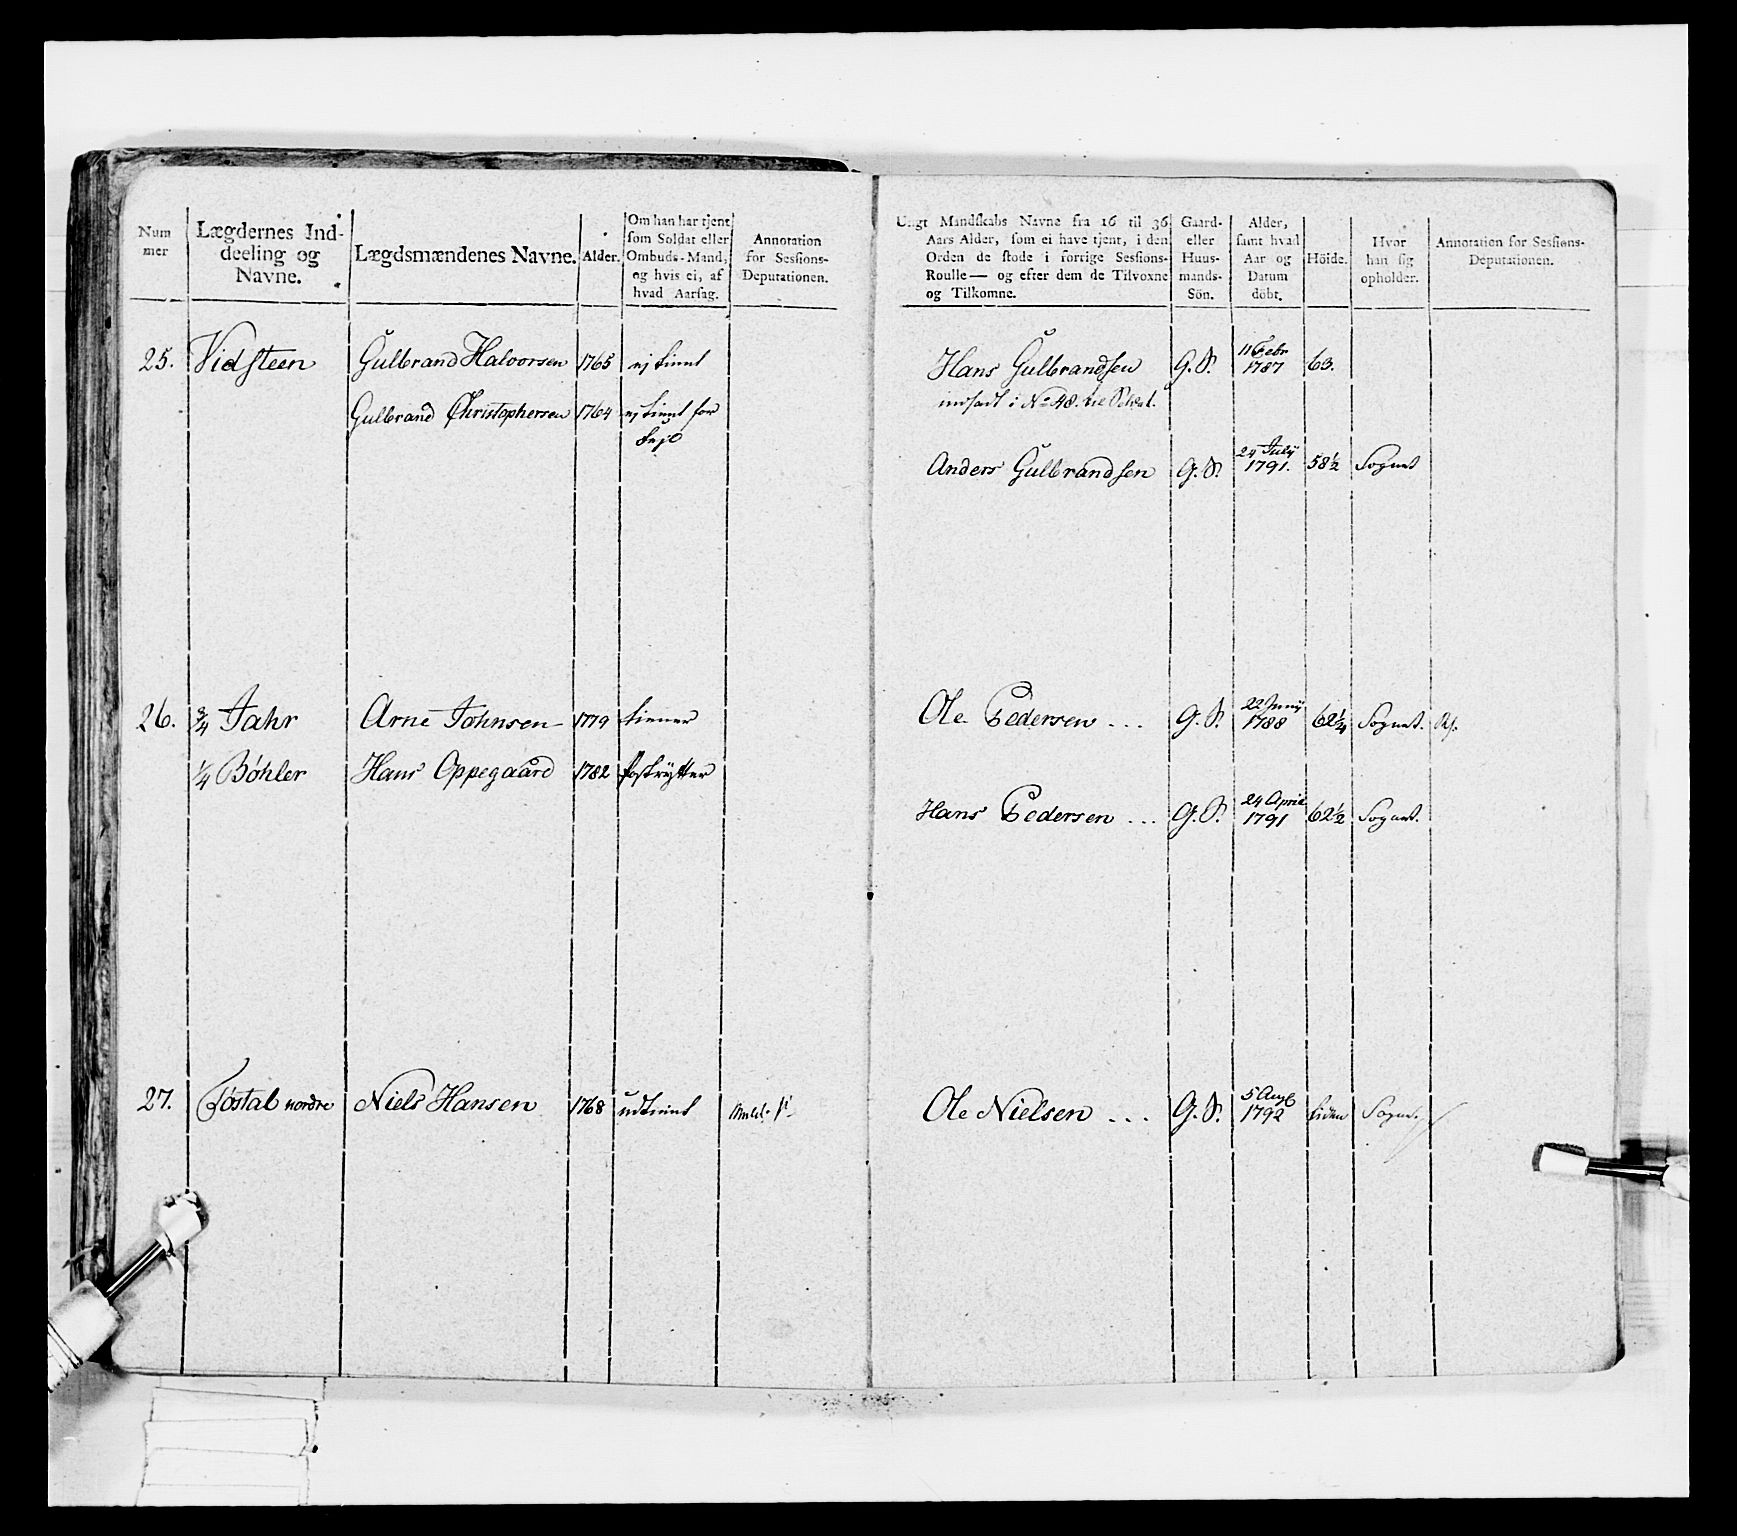 Num
mer
Lægdernes Ind-
deeling og
Navne.
Lægdsmændenes Navne.
Alder.
Om han har tjent
som Soldat eller
Ombuds-Mand,
og hvis ei, af
hvad Aarsag.
Annotation
for Sessions-
Deputationen.
Ungt Mandskabs Navne fra 16 til 36
Aars Alder, som ei have tjent, i den
Orden de stode i forrige Sessions-
Roulle — og efter dem de Tilvoxne
og Tilkomne.
Gaard-
eller
Huus-
mands-
Sön.
Alder,
samt hvad
Aar og
Datum
döbt.
Höide.
Hvor
han sig
opholder.
Annotation for Sessions-
Deputationen.
25. Vidsteen Gulbrand Halvorsen 1765 ej tient
Gulbrand Christophersen 1764 ej tient for
Hans Gulbrandsen G. S. 11 Febr 1787 63.
indsadt i No 48.
Anders Gulbrandsen G. S. 24 July 1791. 58 1/2 Sognet
26. 3/4 Jahr Arne Johnsen 1779 tiener
1/4 Bøhler Hans Oppegaard 1782 Postrytter
Ole Pedersen ... G. S. 22 Juny 1788 62 1/4 Sognet.
Hans Pedersen ... G. S. 24 April 1791 62 1/2 Sognet.
27. Tøstal nordre Niels Hansen 1768 udtient
Ole Nielsen ... G. S. 5 Aug 1792 liden Sogne.